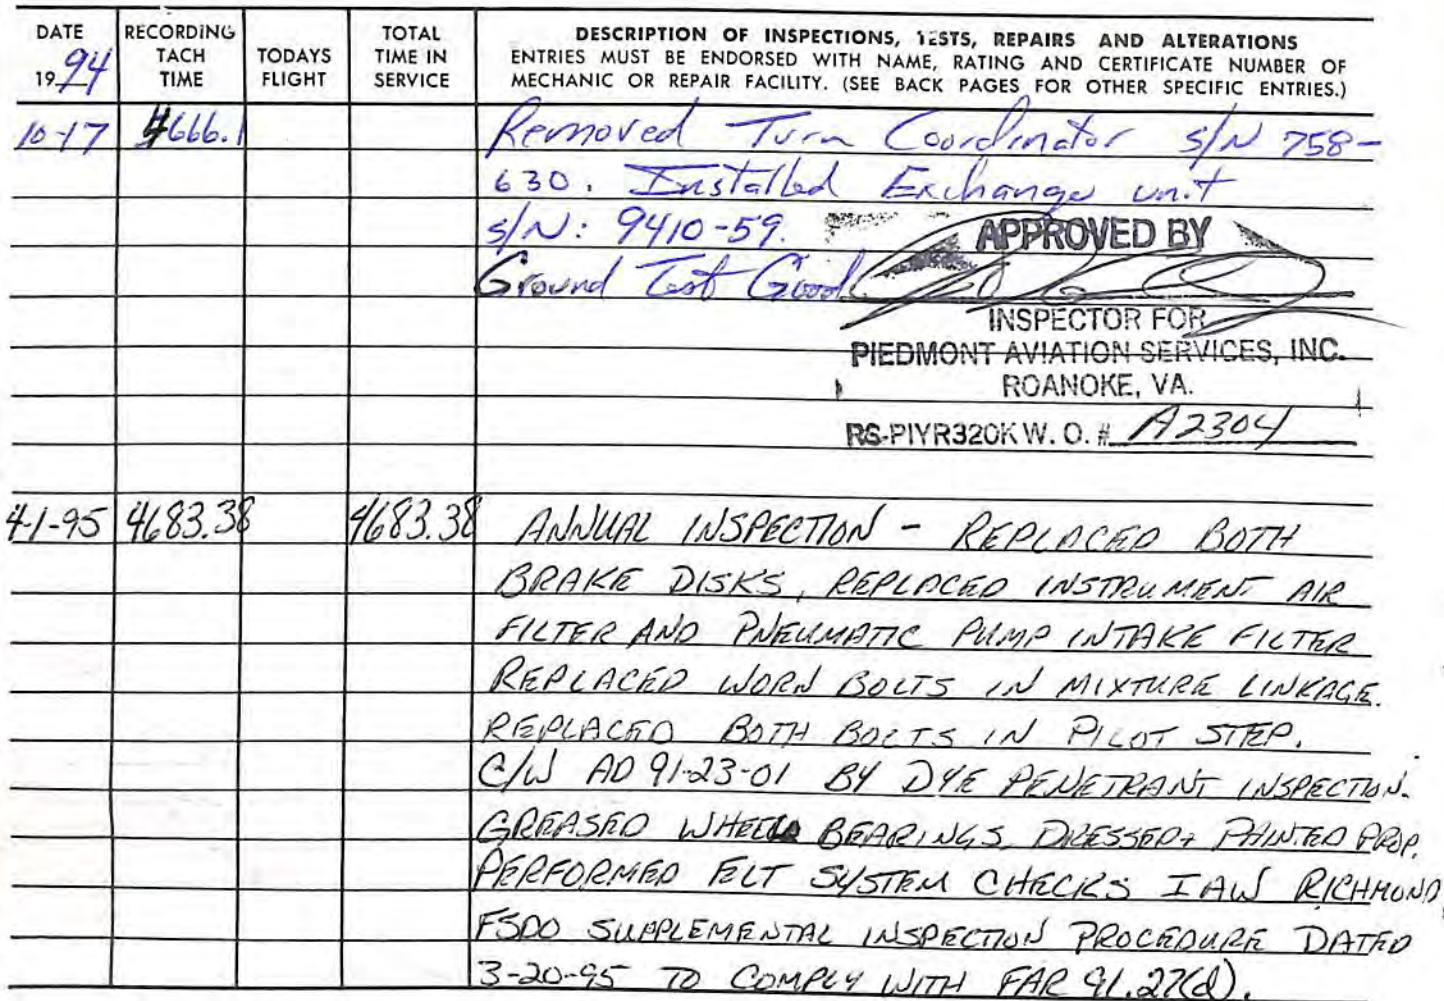 DATE RECORDING TODAYS TOTAL DESCRIPTION OF INSPECTIONS, TESTS, REPAIRS AND ALTERATIONS
19 94 TACH TIME FLIGHT TIME IN SERVICE ENTRIES MUST BE ENDORSED WITH NAME, RATING AND CERTIFICATE NUMBER OF
MECHANIC OR REPAIR FACILITY. (SEE BACK PAGES FOR OTHER SPECIFIC ENTRIES.)
10-17 4666.1 Removed Turn Coordinator S/N 758-
630. Installed Exchange unit
S/N: 9410-59.
APPROVED BY
Ground Test Good
INSPECTOR FOR
PIEDMONT AVIATION SERVICES, INC.
ROANOKE, VA.
RS-PIYR320K W. O. # A2304
4-1-95 4683.38 4683.38 ANNUAL INSPECTION - REPLACED BOTH
BRAKE DISKS, REPLACED INSTRUMENT AIR
FILTER AND PNEUMATIC PUMP INTAKE FILTER
REPLACED WORN BOLTS IN MIXTURE LINKAGE.
REPLACED BOTH BOLTS IN PILOT STEP.
C/W AD 91-23-01 BY DYE PENETRANT INSPECTION.
GREASED WHEEL BEARINGS, DRESSED + PAINTED PROP.
PERFORMED ELT SYSTEM CHECKS IAW RICHMOND
FSDO SUPPLEMENTAL INSPECTION PROCEDURE DATED
3-20-95 TO COMPLY WITH FAR 91.27(d).